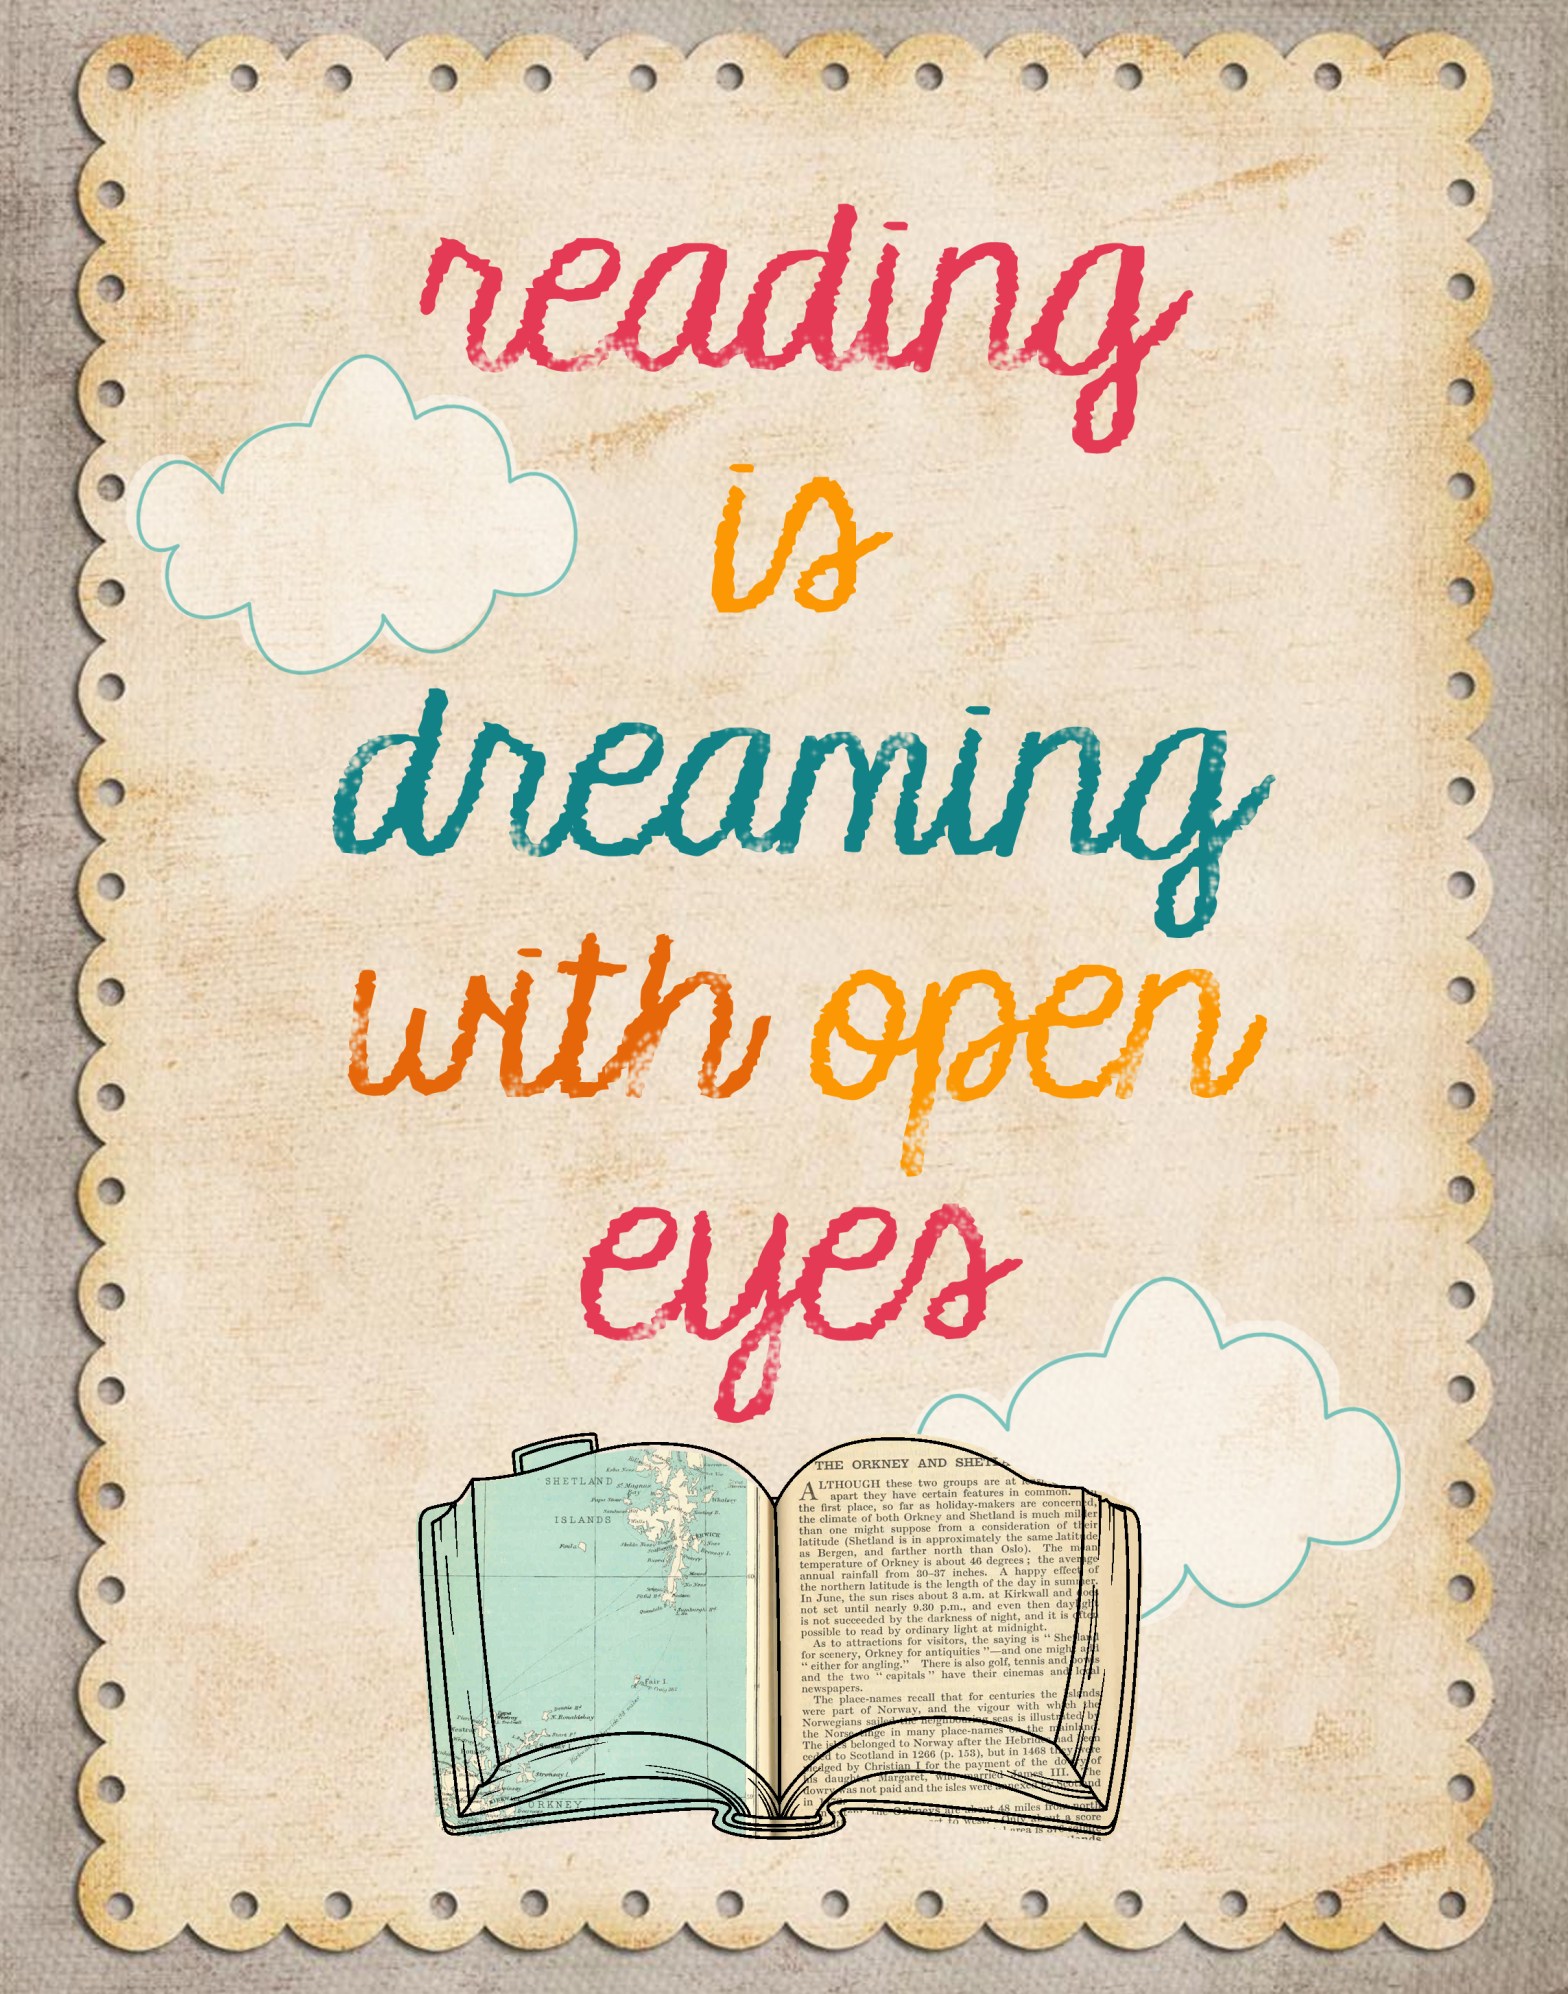 reading
is
dreaming
with open
eyes
SHETLAND
ISLANDS
Foula
Fair I.
N. Ronaldshay
Stronsay I.
THE ORKNEY AND
ALTHOUGH these two groups are at
apart they have certain features in common.
the first place, so far as holiday-makers are concerned,
the climate of both Orkney and Shetland is much milder
than one might suppose from a consideration of their
latitude (Shetland is in approximately the same latitude
as Bergen, and farther north than Oslo). The mean
temperature of Orkney is about 46 degrees; the average
annual rainfall from 30–37 inches. A happy effect of
the northern latitude is the length of the day in summer.
In June, the sun rises about 3 a.m. at Kirkwall and does
not set until nearly 9.30 p.m., and even then daylight
is not succeeded by the darkness of night, and it is often
possible to read by ordinary light at midnight.
As to attractions for visitors, the saying is “ Shetland
for scenery, Orkney for antiquities ”—and one might add
“ either for angling.” There is also golf, tennis and bowls
and the two “ capitals ” have their cinemas and local
newspapers.
The place-names recall that for centuries the islands
were part of Norway, and the vigour with which the
Norwegians sailed the neighbouring seas is illustrated by
the Norse tinge in many place-names on the mainland.
The isles belonged to Norway after the Hebrides had been
ceded to Scotland in 1266 (p. 153), but in 1468 they were
pledged by Christian I for the payment of the dowry of
his daughter Margaret, who married James III. The
dowry was not paid and the isles were annexed by Scotland
in
the Orkneys are about 48 miles from north
to west. Only about a score
area is